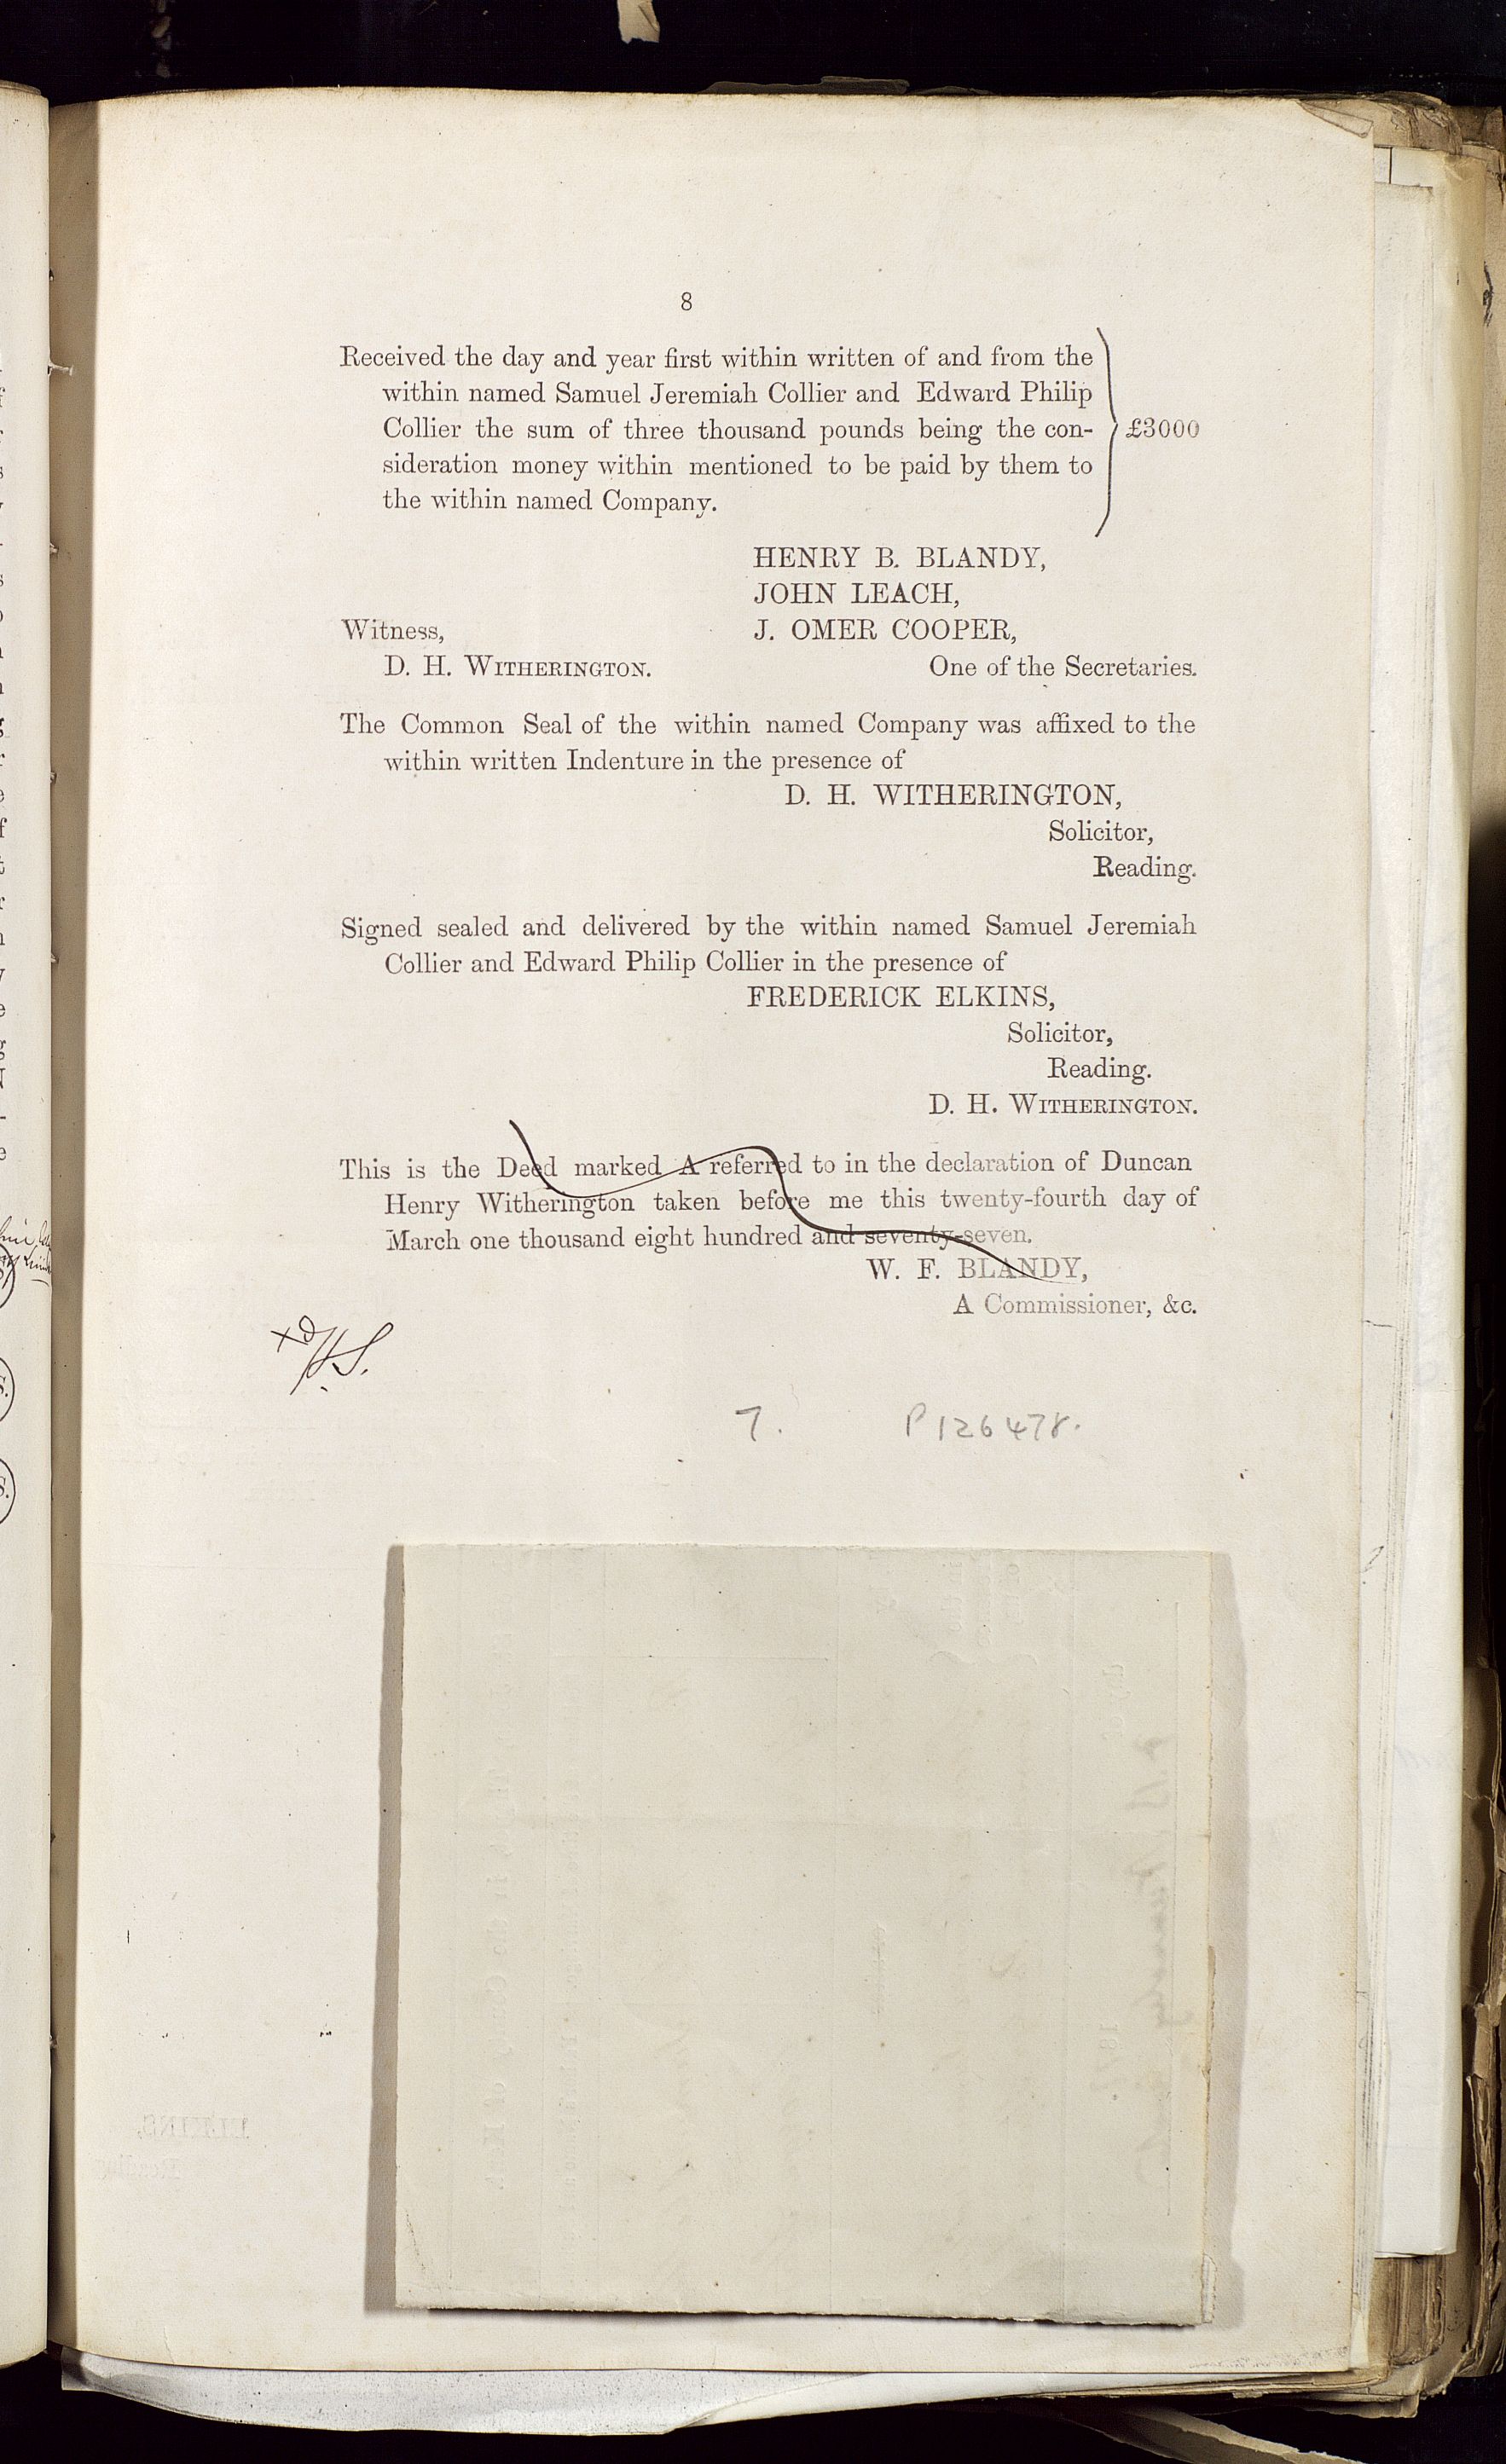 8
Received the day and year first within written of and from the
within named Samuel Jeremiah Collier and Edward Philip
Collier the sum of three thousand pounds being the con-
sideration money within mentioned to be paid by them to
the within named Company.
£3000
HENRY B. BLANDY,
JOHN LEACH,
Witness, J. OMER COOPER,
D. H. WITHERINGTON. One of the Secretaries.
The Common Seal of the within named Company was affixed to the
within written Indenture in the presence of
D. H. WITHERINGTON,
Solicitor,
Reading.
Signed sealed and delivered by the within named Samuel Jeremiah
Collier and Edward Philip Collier in the presence of
FREDERICK ELKINS,
Solicitor,
Reading.
D. H. WITHERINGTON.
This is the Deed marked A referred to in the declaration of Duncan
Henry Witherington taken before me this twenty-fourth day of
March one thousand eight hundred and seventy-seven.
W. F. BLANDY,
A Commissioner, &c.
7. P126478.